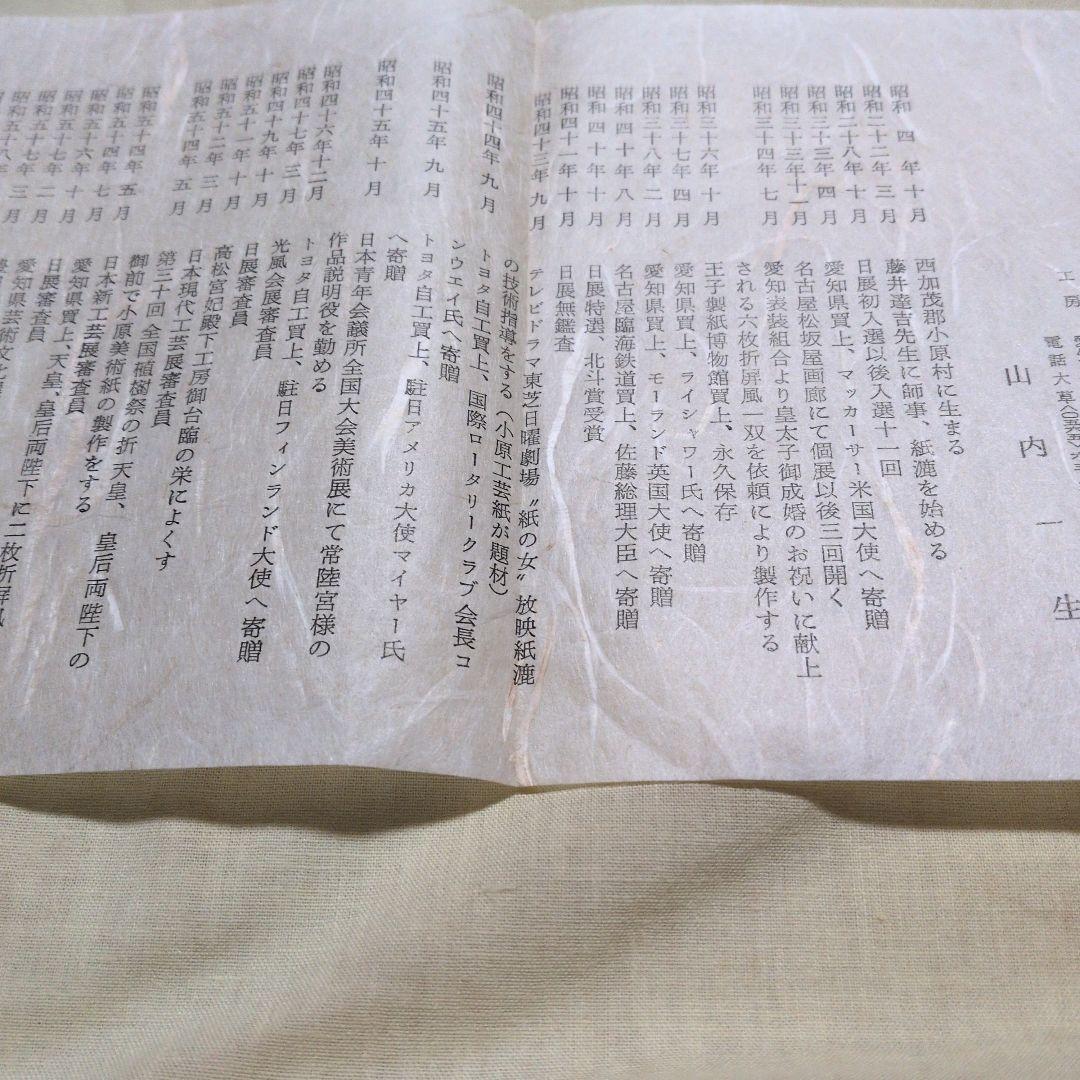 工房
電話大草
山内一生
昭和四年十月 西加茂郡小原村に生まる
昭和二十二年三月 藤井達吉先生に師事、紙漉を始める
昭和二十八年十月 日展初入選以後入選十一回
昭和三十三年四月 愛知県買上、マッカーサー米国大使へ寄贈
昭和三十三年十一月 名古屋松坂屋画廊にて個展以後三回開く
昭和三十四年七月 愛知表装組合より皇太子御成婚のお祝いに献上
される六枚折屏風一双を依頼により製作する
昭和三十六年十月 王子製紙博物館買上、永久保存
昭和三十七年四月 愛知県買上、ライシャワー氏へ寄贈
昭和三十八年二月 愛知県買上、モーランド英国大使へ寄贈
昭和四十年八月 名古屋臨海鉄道買上、佐藤総理大臣へ寄贈
昭和四十年十月 日展特選、北斗賞受賞
昭和四十一年十月 日展無鑑査
昭和四十三年九月 テレビドラマ東芝日曜劇場〝紙の女〟放映紙漉
の技術指導をする（小原工芸紙が題材）
昭和四十四年九月 トヨタ自工買上、国際ロータリークラブ会長コ
ンウェイ氏へ寄贈
昭和四十五年九月 トヨタ自工買上、駐日アメリカ大使マイヤー氏
へ寄贈
昭和四十五年十月 日本青年会議所全国大会美術展にて常陸宮様の
作品説明役を勤める
昭和四十六年十二月 トヨタ自工買上、駐日フィンランド大使へ寄贈
昭和四十七年三月 光風会展審査員
昭和四十九年十月 日展審査員
昭和五十一年十月 高松宮妃殿下工房御台臨の栄によくす
昭和五十二年三月 日本現代工芸展審査員
昭和五十四年五月 第三十回 全国植樹祭の折天皇、皇后両陛下の
御前で小原美術紙の製作をする
昭和五十四年五月 日本新工芸展審査員
昭和五十四年七月 愛知県買上、天皇、皇后両陛下に二枚折屏風
昭和五十六年十月 日展審査員
昭和五十七年二月 愛知県芸術文化
昭和五十七年三月
昭和五十八年三月